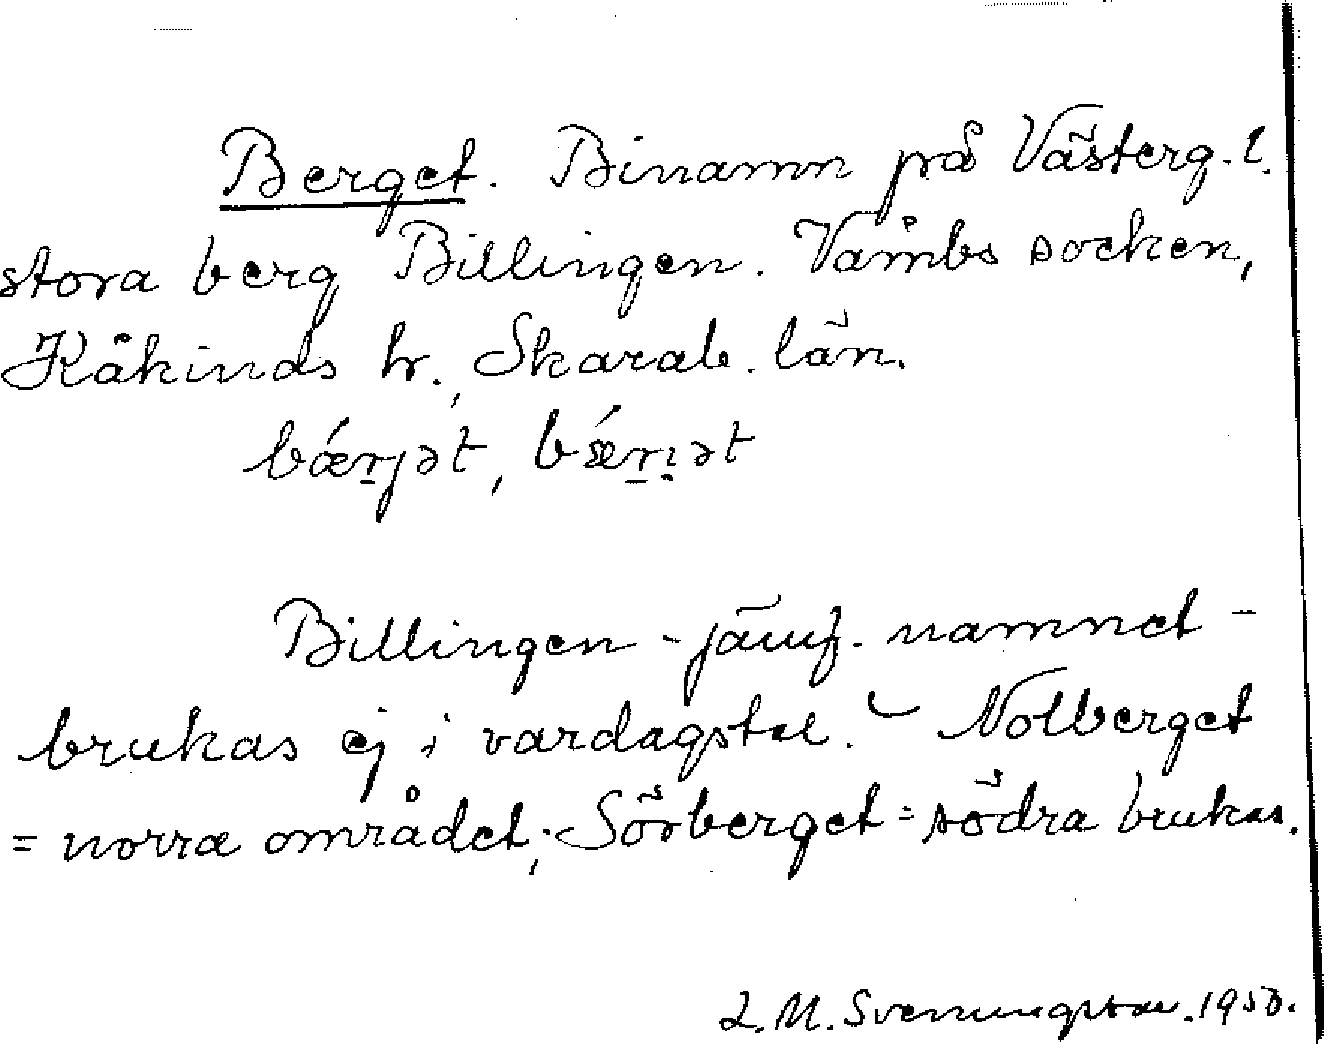 Berget. Binamn på Västerg.l.
stora berg Billingen. Våmbs socken,
Kåkinds hr., Skarab. län.
bǽr̠jət, bǽr̠i̠ət
Billingen - jämf. namnet -
brukas ej i vardagstal. Nolberget
= norra området; Sörberget = södra brukas.
L. M. Svenungsson. 1950.